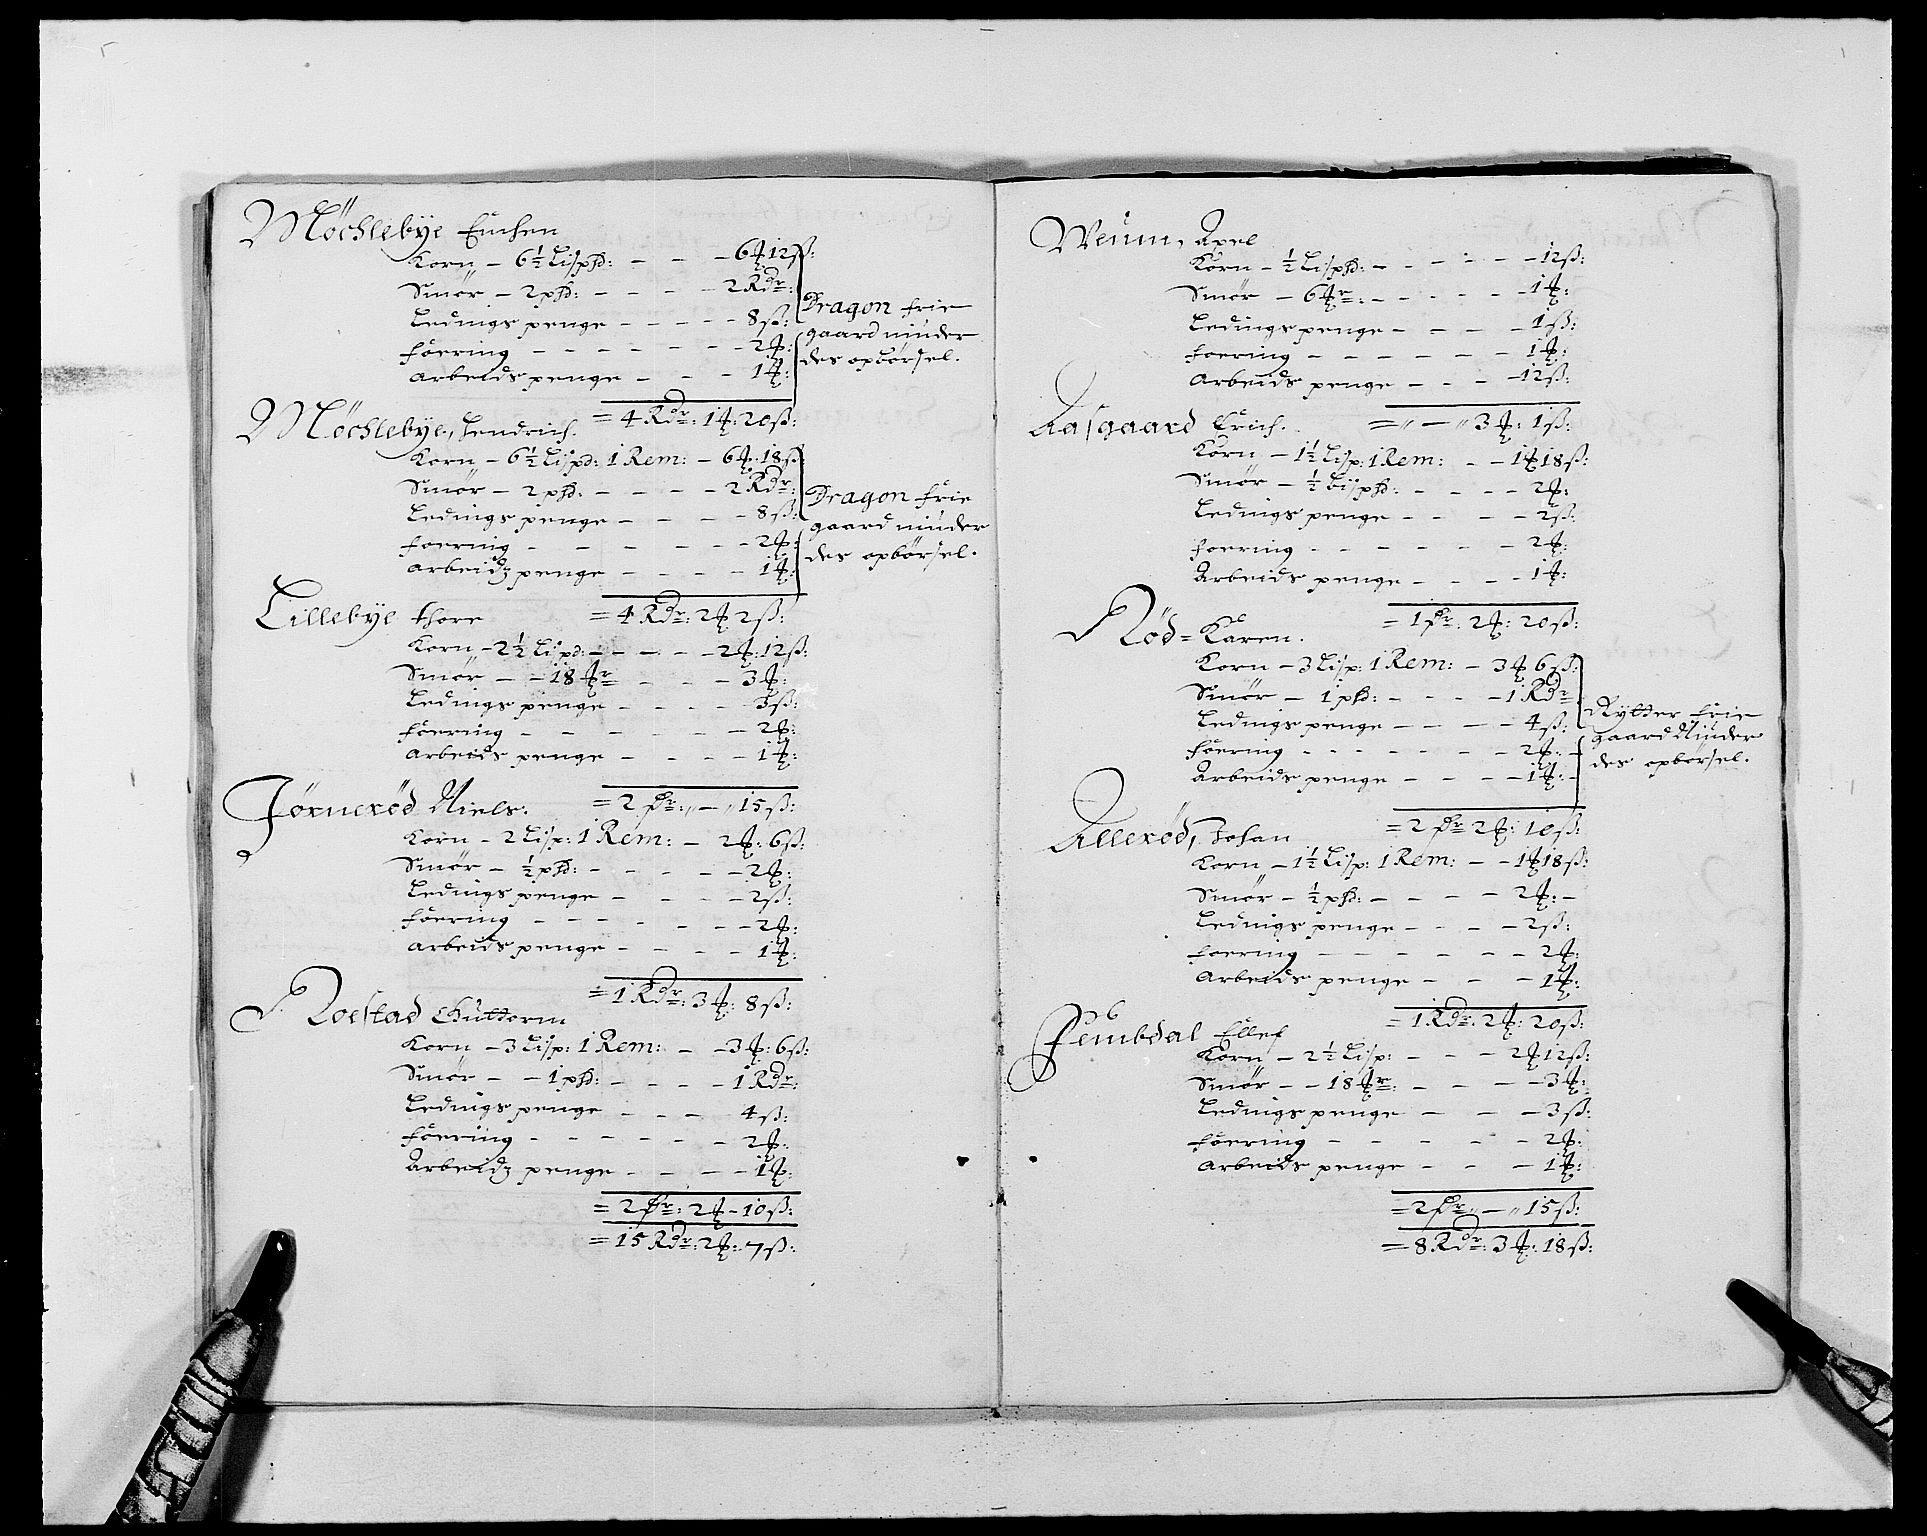 Möchlebÿe Eüchen
Korn – 6½ Lispd: – – – 6 ₰ 12 ß:
Smör – 2 phd: – – – – 2 Rdr:
Ledings penge – – – – – 8 ß:
föering – – – – – – – 2 ₰:
Arbeids penge – – – – 1 ₰:
Dragon frie
gaard münder
des opbörsel.
= 4 Rdr: 1 ₰: 20 ß:
Möchlebÿe, hendrich.
Korn – 6½ Lispd: 1 Rem: – 6 ₰: 18 ß
Smör – 2 phd: – – – – 2 Rdr:
Ledings penge – – – – 8 ß:
foering – – – – – – 2 ₰:
Arbeidz penge – – – – 1 ₰:
Dragon frie
gaard münder
des opbörsel.
= 4 Rdr: 2 ₰ 2 ß:
Lillebÿe thore
Korn – 2½ Lispd: – – – – 2 ₰: 12 ß:
Smör – – 18 ₰r – – – – 3 ₰:
Ledings penge – – – – 3 ß:
föering – – – – – – 2 ₰:
Arbeids penge – – – – 1 ₰:
= 2 Rdr: „ – „ 15 ß:
Jörneröd Niels:
Korn – 2 Lisp: 1 Rem: – 2 ₰: 6 ß:
Smör – ½ phd: – – – – – 2 ₰:
Ledings penge – – – – 2 ß:
föering – – – – – – 2 ₰:
Arbeids penge – – – – 1 ₰:
= 1 Rdr: 3 ₰: 8 ß:
Roestad Güttorm
Korn – 3 Lisp: 1 Rem: – – 3 ₰: 6 ß:
Smör – – 1 phd: – – – – 1 Rdr:
Ledings penge – – – 4 ß:
föering – – – – – – 2 ₰:
Arbeidz penge – – – – 1 ₰:
= 2 Rdr: 2 ₰ – 10 ß:
= 15 Rdr: 2 ₰: 7 ß:
Weüm, Axel
Korn – ½ Lisphd: – – – – – 12 ß:
Smör – 6 ₰r: – – – – – 1 ₰:
Ledings penge – – – – 1 ß:
foering – – – – – – 1 ₰:
Arbeids penge – – – – 12 ß:
= „ – „ 3 ₰: 1 ß:
Aasgaard Erich.
Korn – 1½ Lisp: 1 Rem: – – 1 ₰ 18 ß:
Smör – ½ Lisphd: – – – – 2 ₰:
Ledings penge – – – – 2 ß:
foering – – – – – – 2 ₰:
Arbeids penge – – – – 1 ₰:
= 1 Rdr: 2 ₰: 20 ß:
Röd = Karen.
Korn – 3 Lisp: 1 Rem: – 3 ₰ 6 ß:
Smör – 1 phd: – – – – 1 Rdr
Ledings penge – – – – 4 ß:
föering – – – – – – 2 ₰: –
Arbeids penge – – – – 1 ₰: –
Rytter frie
gaard Münder
des opbörsel.
= 2 Rdr 2 ₰: 10 ß:
Alleröd, Johan
Korn – 1½ Lisp: 1 Rem: – – 1 ₰ 18 ß:
Smör – ½ phd: – – – – 2 ₰: –
Ledings penge – – – – 2 ß:
foering – – – – – – 2 ₰
Arbeids penge – – – 1 ₰:
= 1 Rdr: 2 ₰: 20 ß:
Ellef
Korn – 2½ Lisp: – – – 2 ₰ 12 ß:
Smör – – 18 ₰r: – – – – 3 ₰:
Ledings penge – – – 3 ß:
föering – – – – – – 2 ₰:
Arbeids penge – – – 1 ₰:
= 2 Rdr „ – „ 15 ß:
= 8 Rdr: 3 ₰: 18 ß: